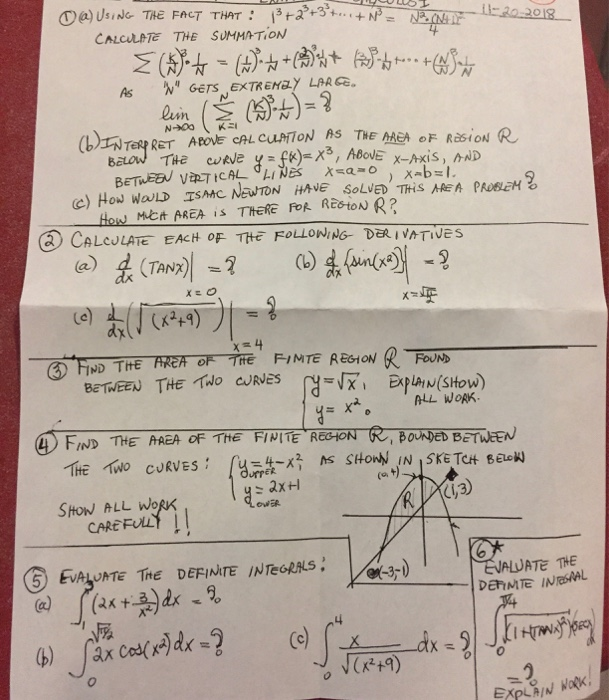 11-20-2018
① (a) USING THE FACT THAT: 1³+2³+3³+...+N³ = N²(N+1)²/4
CALCULATE THE SUMMATION
∑ (K/N)³·1/N = (1/N)³·1/N + (2/N)³·1/N + (3/N)³·1/N + ... + (N/N)³·1/N
AS "N" GETS EXTREMELY LARGE.
lim N→∞ (∑ K=1 N (K/N)³·1/N) = ?
(b) INTERPRET ABOVE CALCULATION AS THE AREA OF REGION R
BELOW THE CURVE y = f(x) = x³, ABOVE X-AXIS, AND
BETWEEN VERTICAL LINES x=a=0, x=b=1.
(c) HOW WOULD ISAAC NEWTON HAVE SOLVED THIS AREA PROBLEM?
HOW MUCH AREA IS THERE FOR REGION R?
② CALCULATE EACH OF THE FOLLOWING DERIVATIVES
(a) d/dx (TANX)| x=0 = ? (b) d/dx {sin(x²)}| x=√π/2 = ?
(c) d/dx (√(x²+9))| x=4 = ?
③ FIND THE AREA OF THE FINITE REGION R FOUND
BETWEEN THE TWO CURVES { y=√x, EXPLAIN (SHOW)
y = x². ALL WORK.
④ FIND THE AREA OF THE FINITE REGION R, BOUNDED BETWEEN
THE TWO CURVES: { y = 4-x², AS SHOWN IN SKETCH BELOW
UPPER
y = 2x+1
LOWER
SHOW ALL WORK
CAREFULLY!!
(0,4)
(1,3)
R
(-3,-1)
⑤ EVALUATE THE DEFINITE INTEGRALS:
(a) ∫ (2x + 3/x²) dx = ?
(b) ∫ 0 √π/2 2x cos(x²) dx = ? (c) ∫ 0 4 x/√(x²+9) dx = ?
⑥★
EVALUATE THE
DEFINITE INTEGRAL
∫ 0 π/4
= ?
EXPLAIN WORK!